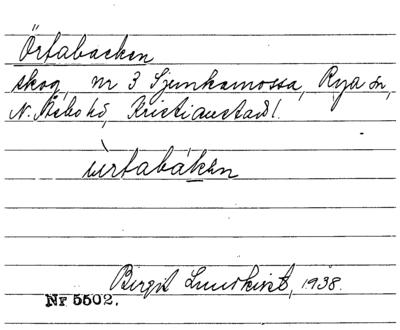 Örtabacken
skog, nr 3 Sjunkamossa, Rya sn,
N. Åsbo hd, Kristianstad l.
ùrtabákęn
Birgit Lundkvist, 1938.
Nr 5502.